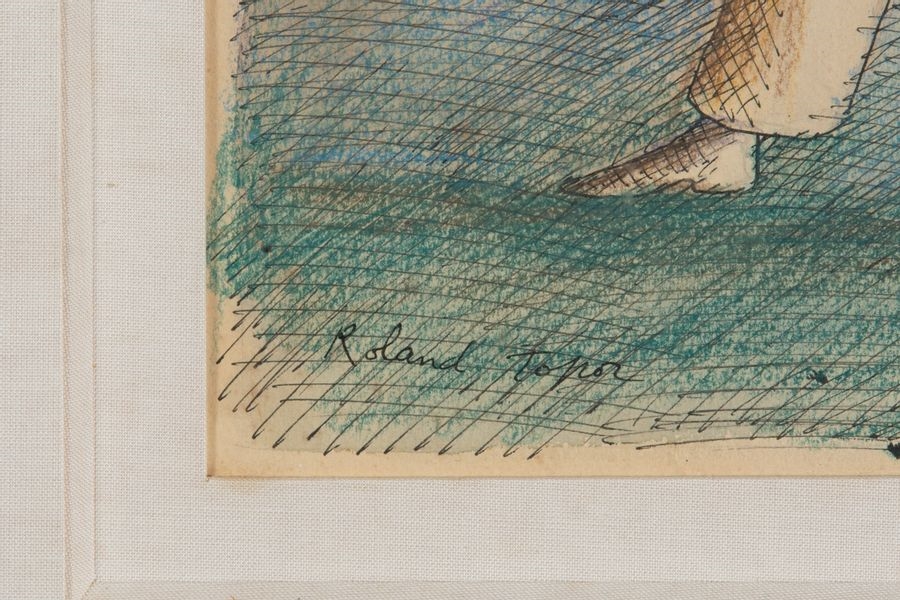 Roland topor